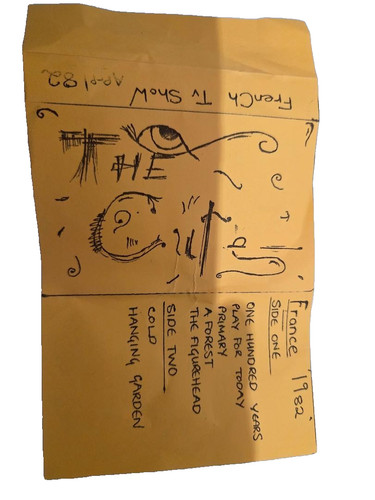 FrenCh Tv ShoW APR 82
THE
France '1982'
SIDE ONE
ONE HUNDRED YEARS
PLAY FOR TODAY
PRIMARY
A FOREST
THE FIGUREHEAD
SIDE TWO
COLD
HANGING GARDEN